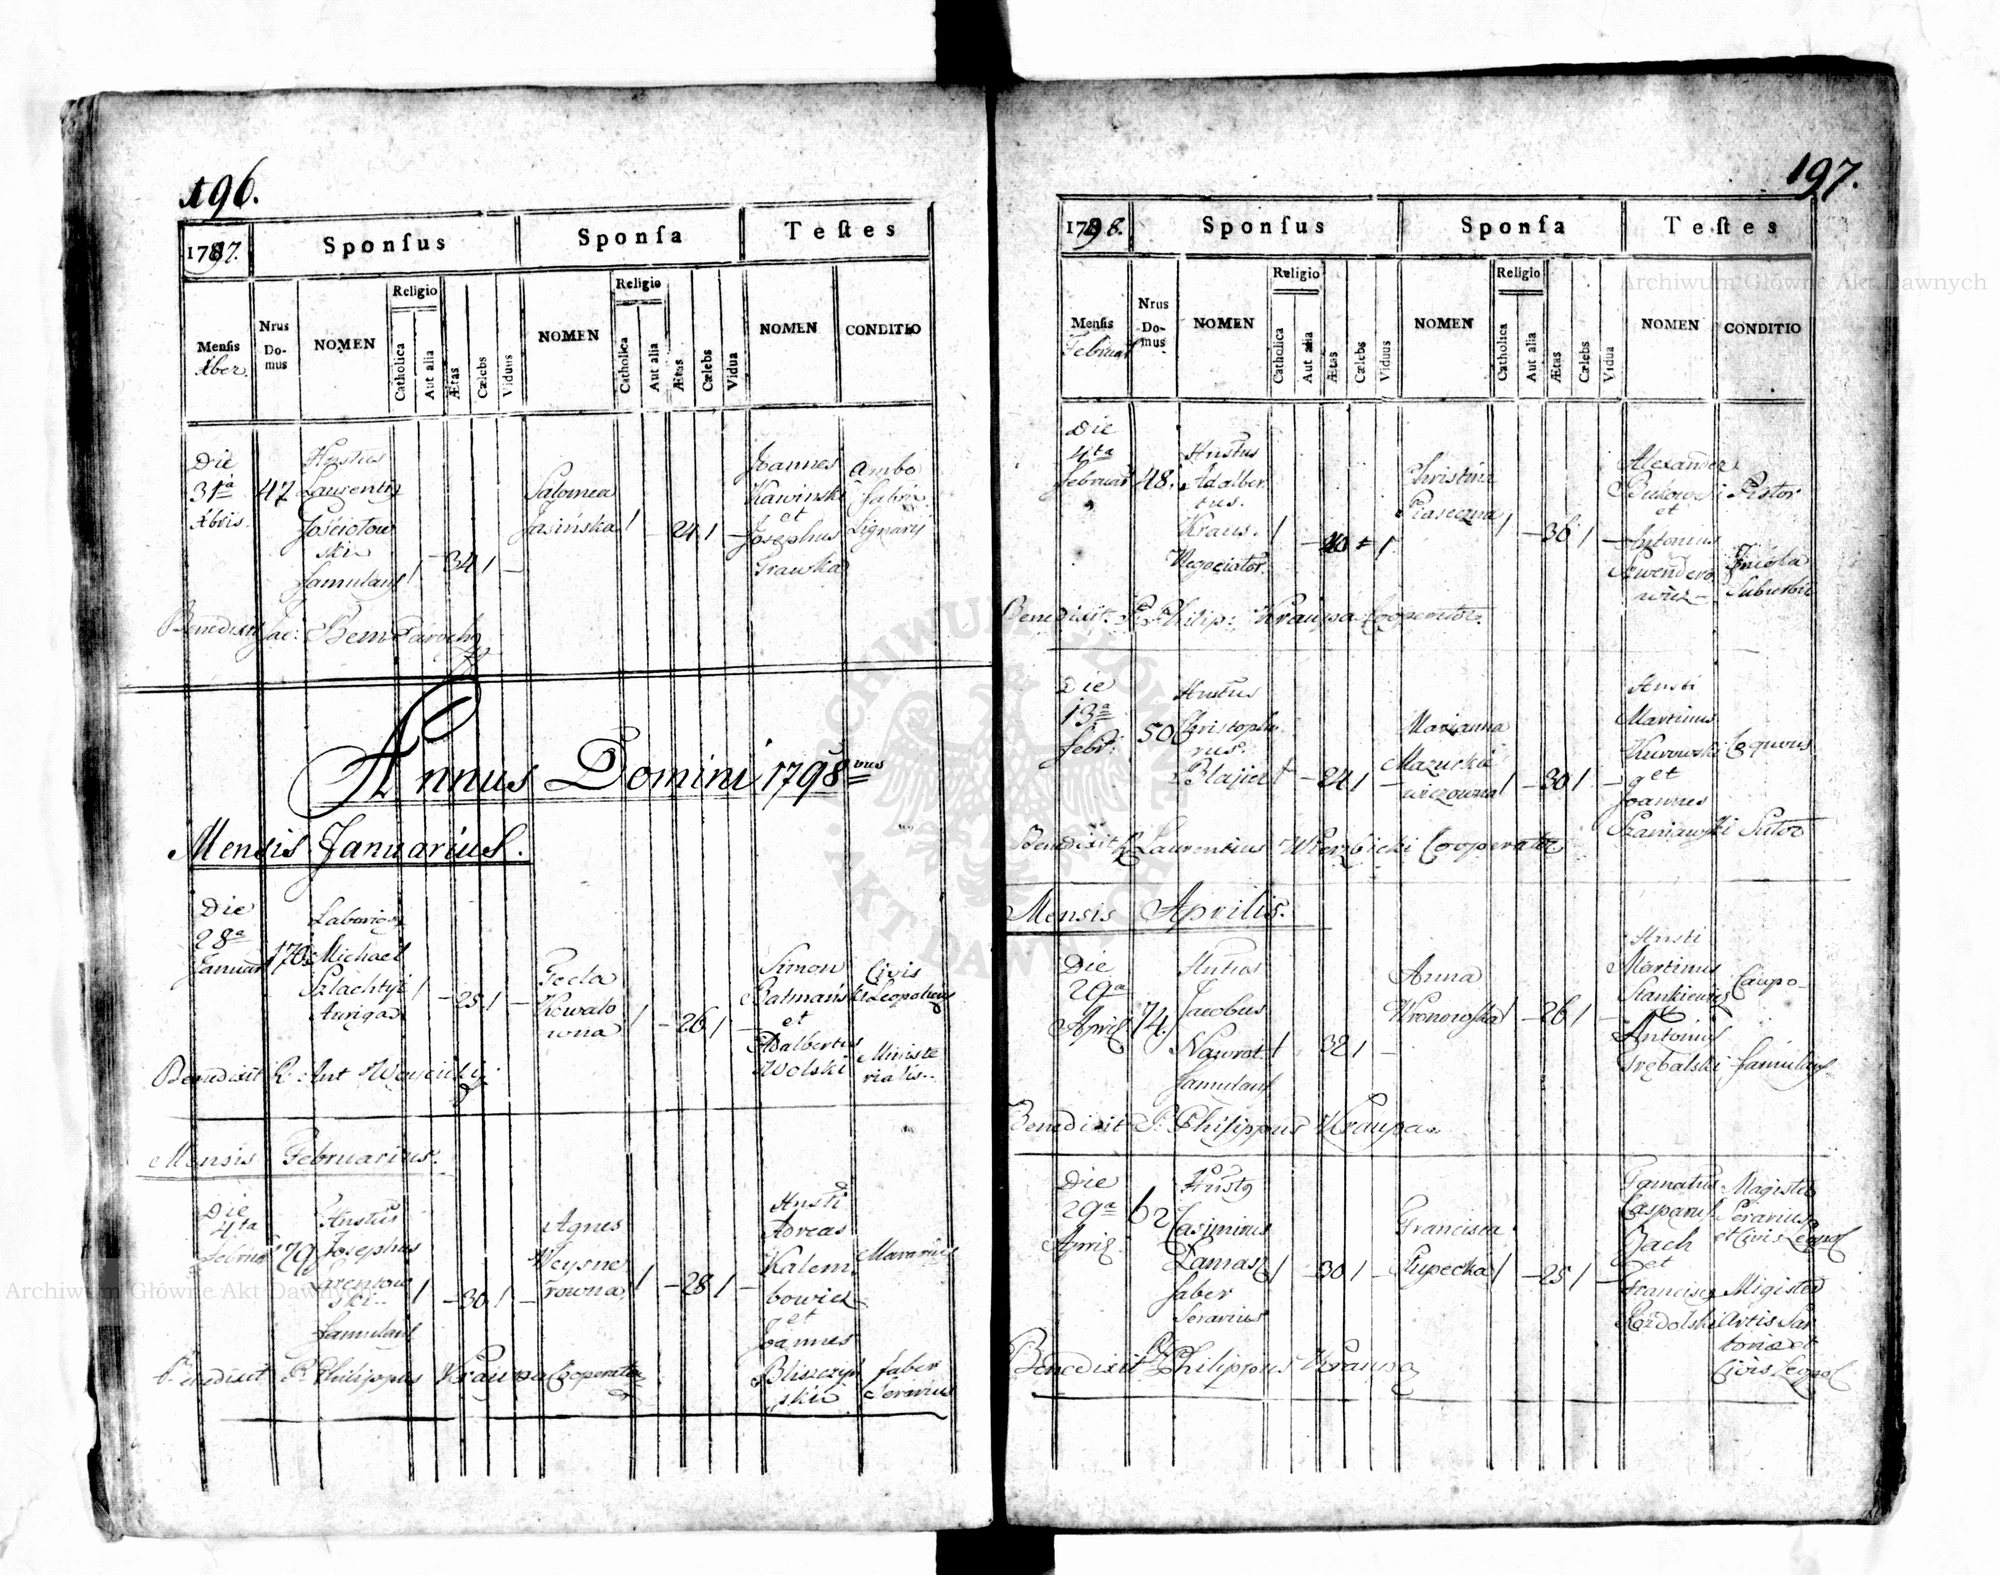 196.
1797.
Sponſus
Sponſa
Teſtes
Menſis
Xber.
Nrus
Do-
mus
NOMEN
Religio
Catholica
Aut alia
Ætas
Cælebs
Viduus
NOMEN
Religio
Catholica
Aut alia
Ætas
Cælebs
Vidua
NOMEN
CONDITIO
Die
31a
Xbris.
47
Laurentij
Famulaus
34
Salomea
Jasińska
24
Joannes
Kawinski
et
Josephus
Grawka
ambo
fabri
Lignarij
Benedixit Jac: Bem Paroch
Annus Domini 1798vus
Mensis Januarius.
Die
28a
Januar
170
Michael
Szlachtyc
Auriga
25
Tecla
Kowalo
wna
26
Simon
Batmański
et
Adalbertus
Wolski
Civis
Leopoliens
Ministe
rialis
Benedixit R. Ant Woycicki
Mensis Februarius.
Die
4ta
Februar
79
Josephus
Lorentow
ski
30
Agnes
Weysne
rowna
28
Hnsti
Adreas
Kalem
bowicz
et
Joannes
Bliszczyń
ski
Murarius
faber
Serarius
Benedixit P. Philippus Kraupa Cooperator
197.
1798.
Sponſus
Sponſa
Teſtes
Menſis
Februar
Nrus
Do-
mus
NOMEN
Religio
Catholica
Aut alia
Ætas
Cælebs
Viduus
NOMEN
Religio
Catholica
Aut alia
Ætas
Cælebs
Vidua
NOMEN
CONDITIO
Die
4ta
Februar
48.
Hnstus
Adalber
tus.
Kraus.
Negociator.
40
Christina
Piaseczna
36
Alexander
Bukowski
et
Antonius
Pistor
Incola
Suburbii
Benedixit P. Philip: Kraupa Cooperator.
Die
13a
Febr:
50
Hnstus
Christopho
rus.
Blajier
24
Marianna
Mazurkie
wiczowna
30
Hnsti
Martinus
Kurowski
et
Joannes
Szaniawski
Sutor
Benedixit R Laurentius Wierzbicki Cooperator
Mensis Aprilis.
Die
29a
April
74.
Jacobus
Nawrot
Famulaus
32
Anna
Wronowska
26
Hnsti
Martinus
Stankiewicz
Antonius
Trębalski
Caupo
famulaus
Benedixit P. Philippus Kraupa
Die
29a
April
62
Casimirus
Lamasz
faber
Serarius
30
Francisca
Pupecka
25
Famatus
Casparus
Zach
et
Francisc
Rozdolski
Magister
Serarius
et Civis Leopol
Migister
Artis Sar
toriæ et
Civis Leopol
Benedixit Philippus Kraupa
Archiwum Główne Akt Dawnych
Archiwum Główne Akt Dawnych
ARCHIWUM GŁÓWNE AKT DAWNYCH